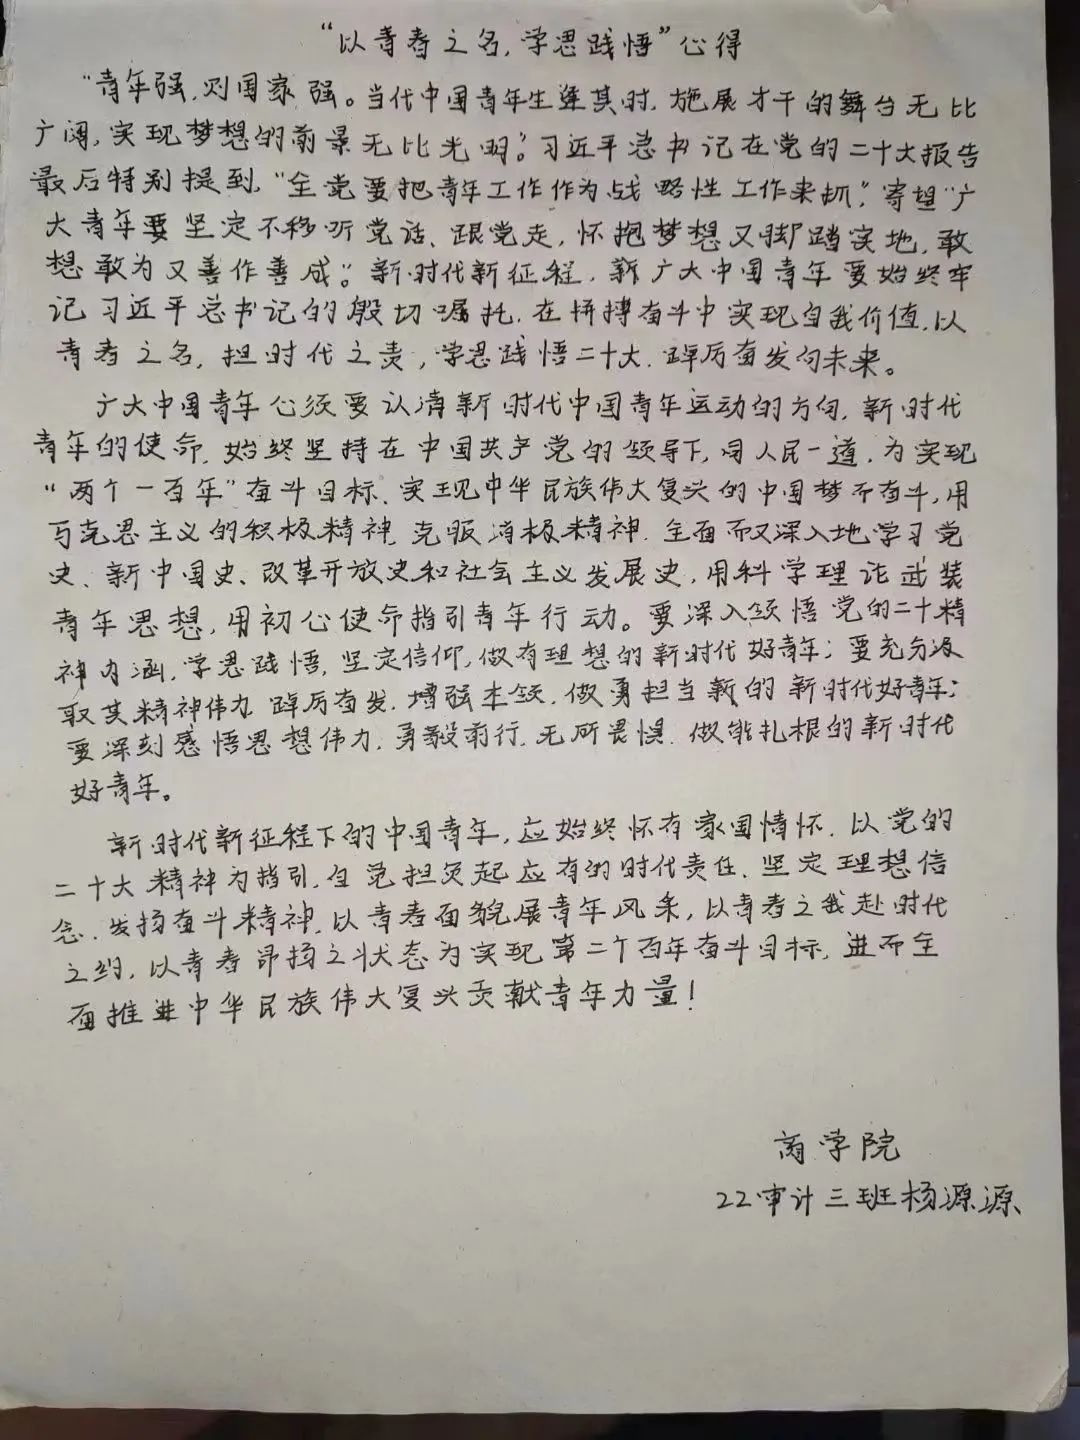 “以青春之名，学思践悟”心得
“青年强，则国家强。当代中国青年生逢其时，施展才干的舞台无比
广阔，实现梦想的前景无比光明。”习近平总书记在党的二十大报告
最后特别提到，“全党要把青年工作作为战略性工作来抓”，寄望“广
大青年要坚定不移听党话、跟党走，怀抱梦想又脚踏实地，敢
想敢为又善作善成”。新时代新征程，新广大中国青年要始终牢
记习近平总书记的殷切嘱托，在拼搏奋斗中实现自我价值，以
青春之名，担时代之责，学思践悟二十大，踔厉奋发向未来。
广大中国青年必须要认清新时代中国青年运动的方向，新时代
青年的使命，始终坚持在中国共产党的领导下，同人民一道，为实现
“两个一百年”奋斗目标、实现中华民族伟大复兴的中国梦而奋斗，用
马克思主义的积极精神，克服消极精神，全面而又深入地学习党
史、新中国史、改革开放史和社会主义发展史，用科学理论武装
青年思想，用初心使命指引青年行动。要深入领悟党的二十精
神内涵，学思践悟，坚定信仰，做有理想的新时代好青年；要充分汲
取其精神伟力，踔厉奋发，增强本领，做勇担当新的新时代好青年；
要深刻感悟思想伟力，勇毅前行，无所畏惧，做能扎根的新时代
好青年。
新时代新征程下的中国青年，应始终怀有家国情怀，以党的
二十大精神为指引，自觉担负起应有的时代责任，坚定理想信
念，发扬奋斗精神，以青春面貌展青年风采，以青春之我赴时代
之约，以青春昂扬之状态为实现第二个百年奋斗目标，进而全
面推进中华民族伟大复兴贡献青年力量！
商学院
22审计三班杨源源